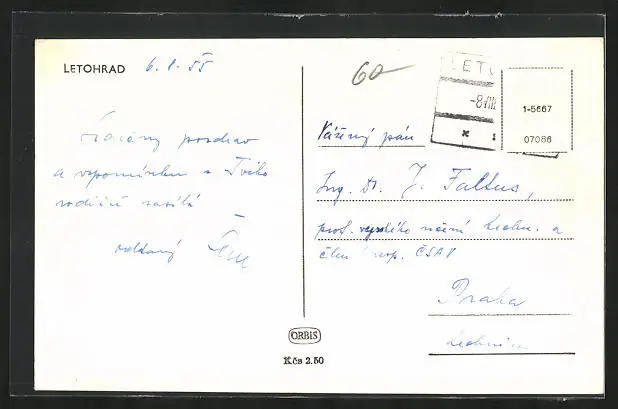 LETOHRAD 6. 8. 55
60
LETO
-8.VIII
1-5667
07086
Srdečný pozdrav
a vzpomínku z Tvého
rodiště zasílá
oddaný
Vážený pán
Ing. Dr. J. Faltus,
prof. vysokého učení techn. a
člen korresp. ČSAV
Praha
technika
ORBIS
Kčs 2.50